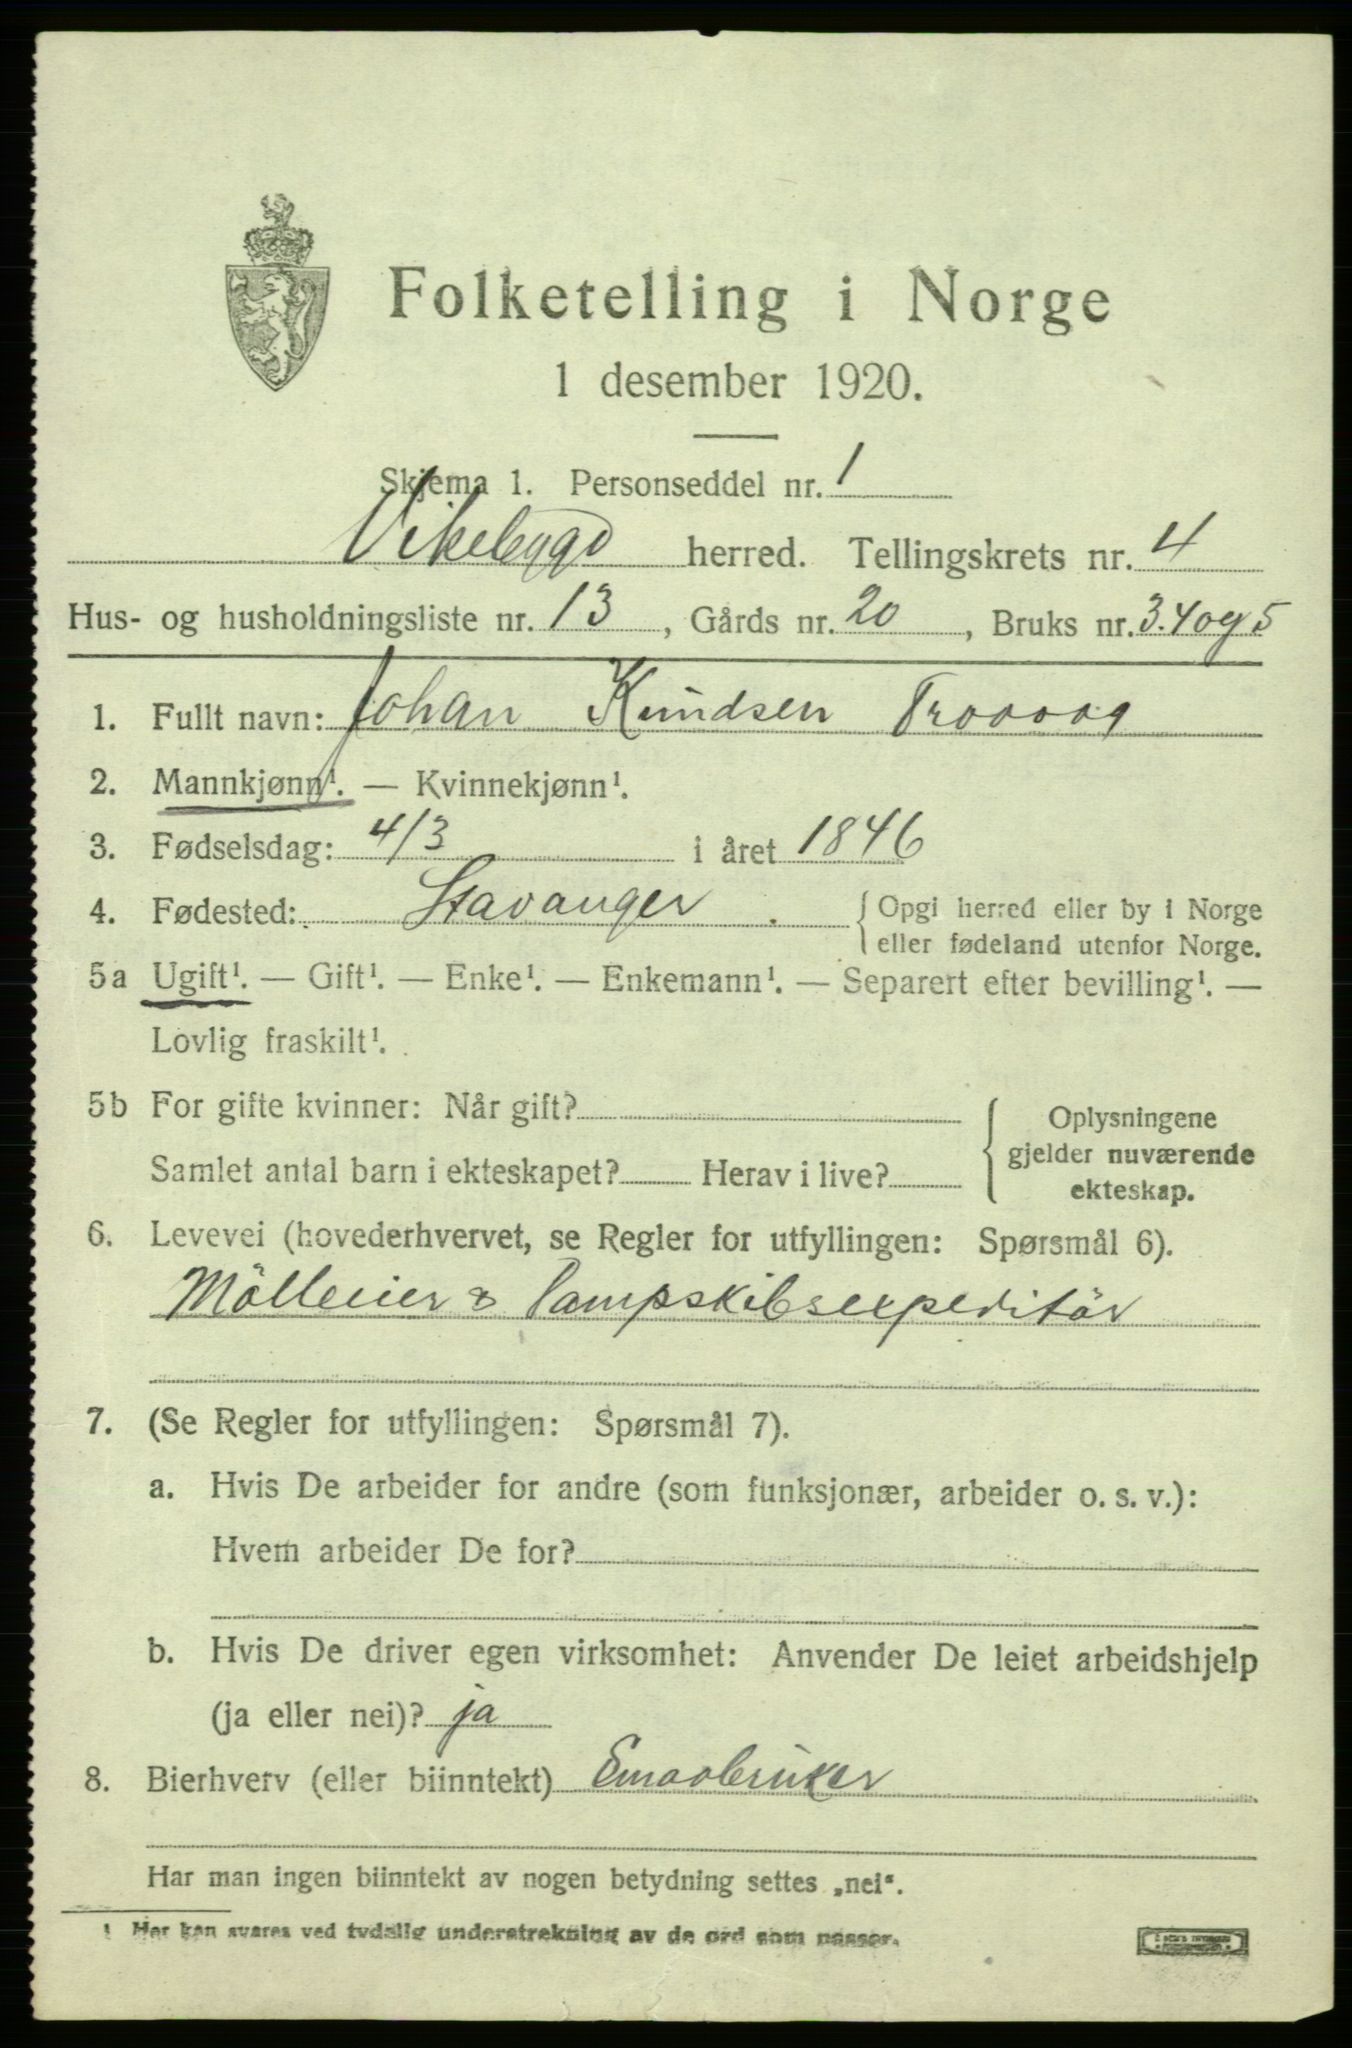 Folketelling i Norge
1 desember 1920.
Skjema 1. Personseddel nr. 1
Vikebygd herred. Tellingskrets nr. 4
Hus- og husholdningsliste nr. 13, Gårds nr. 20, Bruks nr. 3.4 og 5
1. Fullt navn: Johan Knudsen
2. Mannkjønn¹. — Kvinnekjønn¹.
3. Fødselsdag: 4/3 i året 1846
4. Fødested: Stavanger. {Opgi herred eller by i Norge
eller fødeland utenfor Norge.
5a Ugift¹. — Gift¹. — Enke¹. — Enkemann¹. — Separert efter bevilling¹. —
Lovlig fraskilt¹.
5b For gifte kvinner: Når gift?
Samlet antal barn i ekteskapet? Herav i live?
{Oplysningene
gjelder nuværende
ekteskap.
6. Levevei (hovederhvervet, se Regler for utfyllingen: Spørsmål 6).
Mölleeier & Dampskibsexpeditör
7. (Se Regler for utfyllingen: Spørsmål 7).
a. Hvis De arbeider for andre (som funksjonær, arbeider o. s. v.):
Hvem arbeider De for?
b. Hvis De driver egen virksomhet: Anvender De leiet arbeidshjelp
(ja eller nei)? ja
8. Bierhverv (eller biinntekt) Smaabruker
Har man ingen biinntekt av nogen betydning settes „nei“.
1 Her kan svares ved tydelig understrekning av de ord som passer.